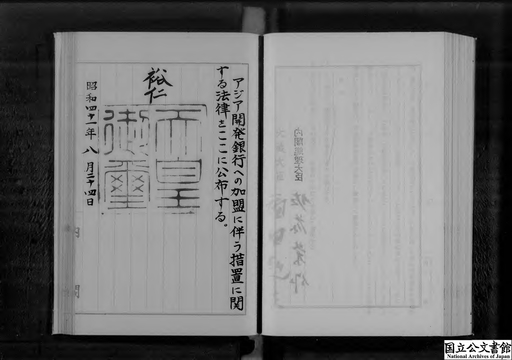 アジア開発銀行への加盟に伴う措置に関
する法律をここに公布する。
裕仁
天皇
御璽
昭和四十一年八月二十四日
内閣総理大臣
佐藤榮作
国立公文書館
National Archives of Japan